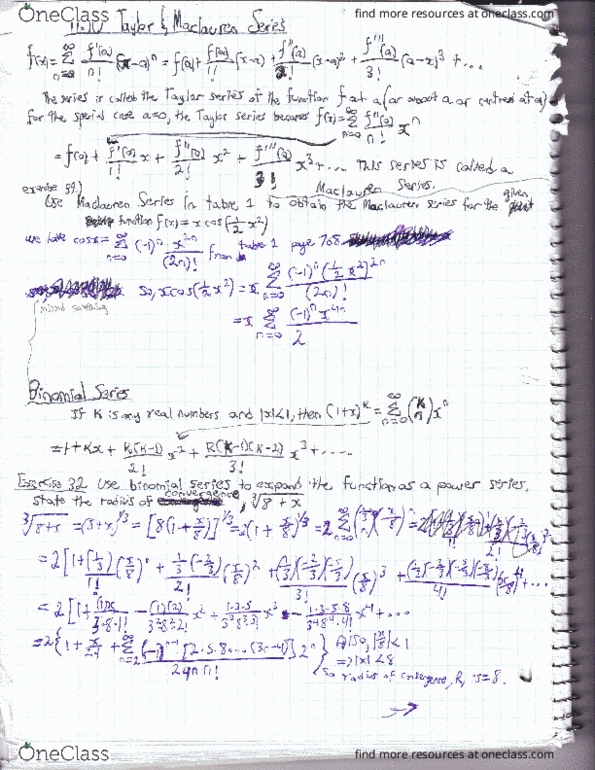 OneClass
find more resources at oneclass.com
11.10 Taylor & Maclauren Series
f(x) = ∞ Σ n=0 f^n(a)/n! (x-a)^n = f(a) + f'(a)/1! (x-a) + f''(a)/2! (x-a)² + f'''(a)/3! (a-x)³ + ...
The series is called the Taylor series of the function f at a (or about a or centred at a)
for the special case a=0, the Taylor series becomes f(x) = ∞ Σ n=0 f^n(a)/n! x^n
= f(0) + f'(0)/1! x + f''(0)/2! x² + f'''(a)/3! x³ + ... This series is called a
Maclauren Series.
Use Maclauren Series in table 1 to obtain the Maclauren series for the given
function f(x) = x cos(1/2 x²)
we have cosx = ∞ Σ n=0 (-1)^n x^2n/(2n)! from table 1 page 768
so, x cos(1/2 x²) = x ∞ Σ n=0 (-1)^n (1/2 x²)^2n/(2n)!
mixed
= x ∞ Σ n=0 (-1)^n x^4n/2
Binomial Series
If K is any real numbers and |x|<1, then (1+x)^k = ∞ Σ n=0 (k n) x^n
= 1 + Kx + K(K-1)/2! x² + K(K-1)(K-2)/3! x³ + ....
Exercise 32 Use binomial series to expand the function as a power series.
state the radius of convergence, ³√8+x
³√8+x = (8+x)^1/3 = [8(1+x/8)]^1/3 = 2(1+x/8)^1/3 = 2 ∞ Σ n=0 (1/3 n)(x/8)^n
= 2[1 + (1/3)/1! (x/8)' + 1/3(-2/3)/2! (x/8)² + (1/3)(-2/3)(-5/3)/3! (x/8)³ + (1/3)(-2/3)(-5/3)(-8/3)/4! (x/8)⁴ + ...
= 2[1 + (1)x/3·8·1! - (1)(2)/3²·8²·2! x² + 1·2·5/3³8³3! x³ - 1·2·5·8/3⁴8⁴·4! x⁴ + ...
= 2{1 + x/24 + ∞ Σ n=2 (-1)^n-1 [2·5·8...(3n-4)] x^n/24^n n! } Also, |x/8| < 1
=> |x| < 8
so radius of convergence, R, is = 8.
OneClass
find more resources at oneclass.com